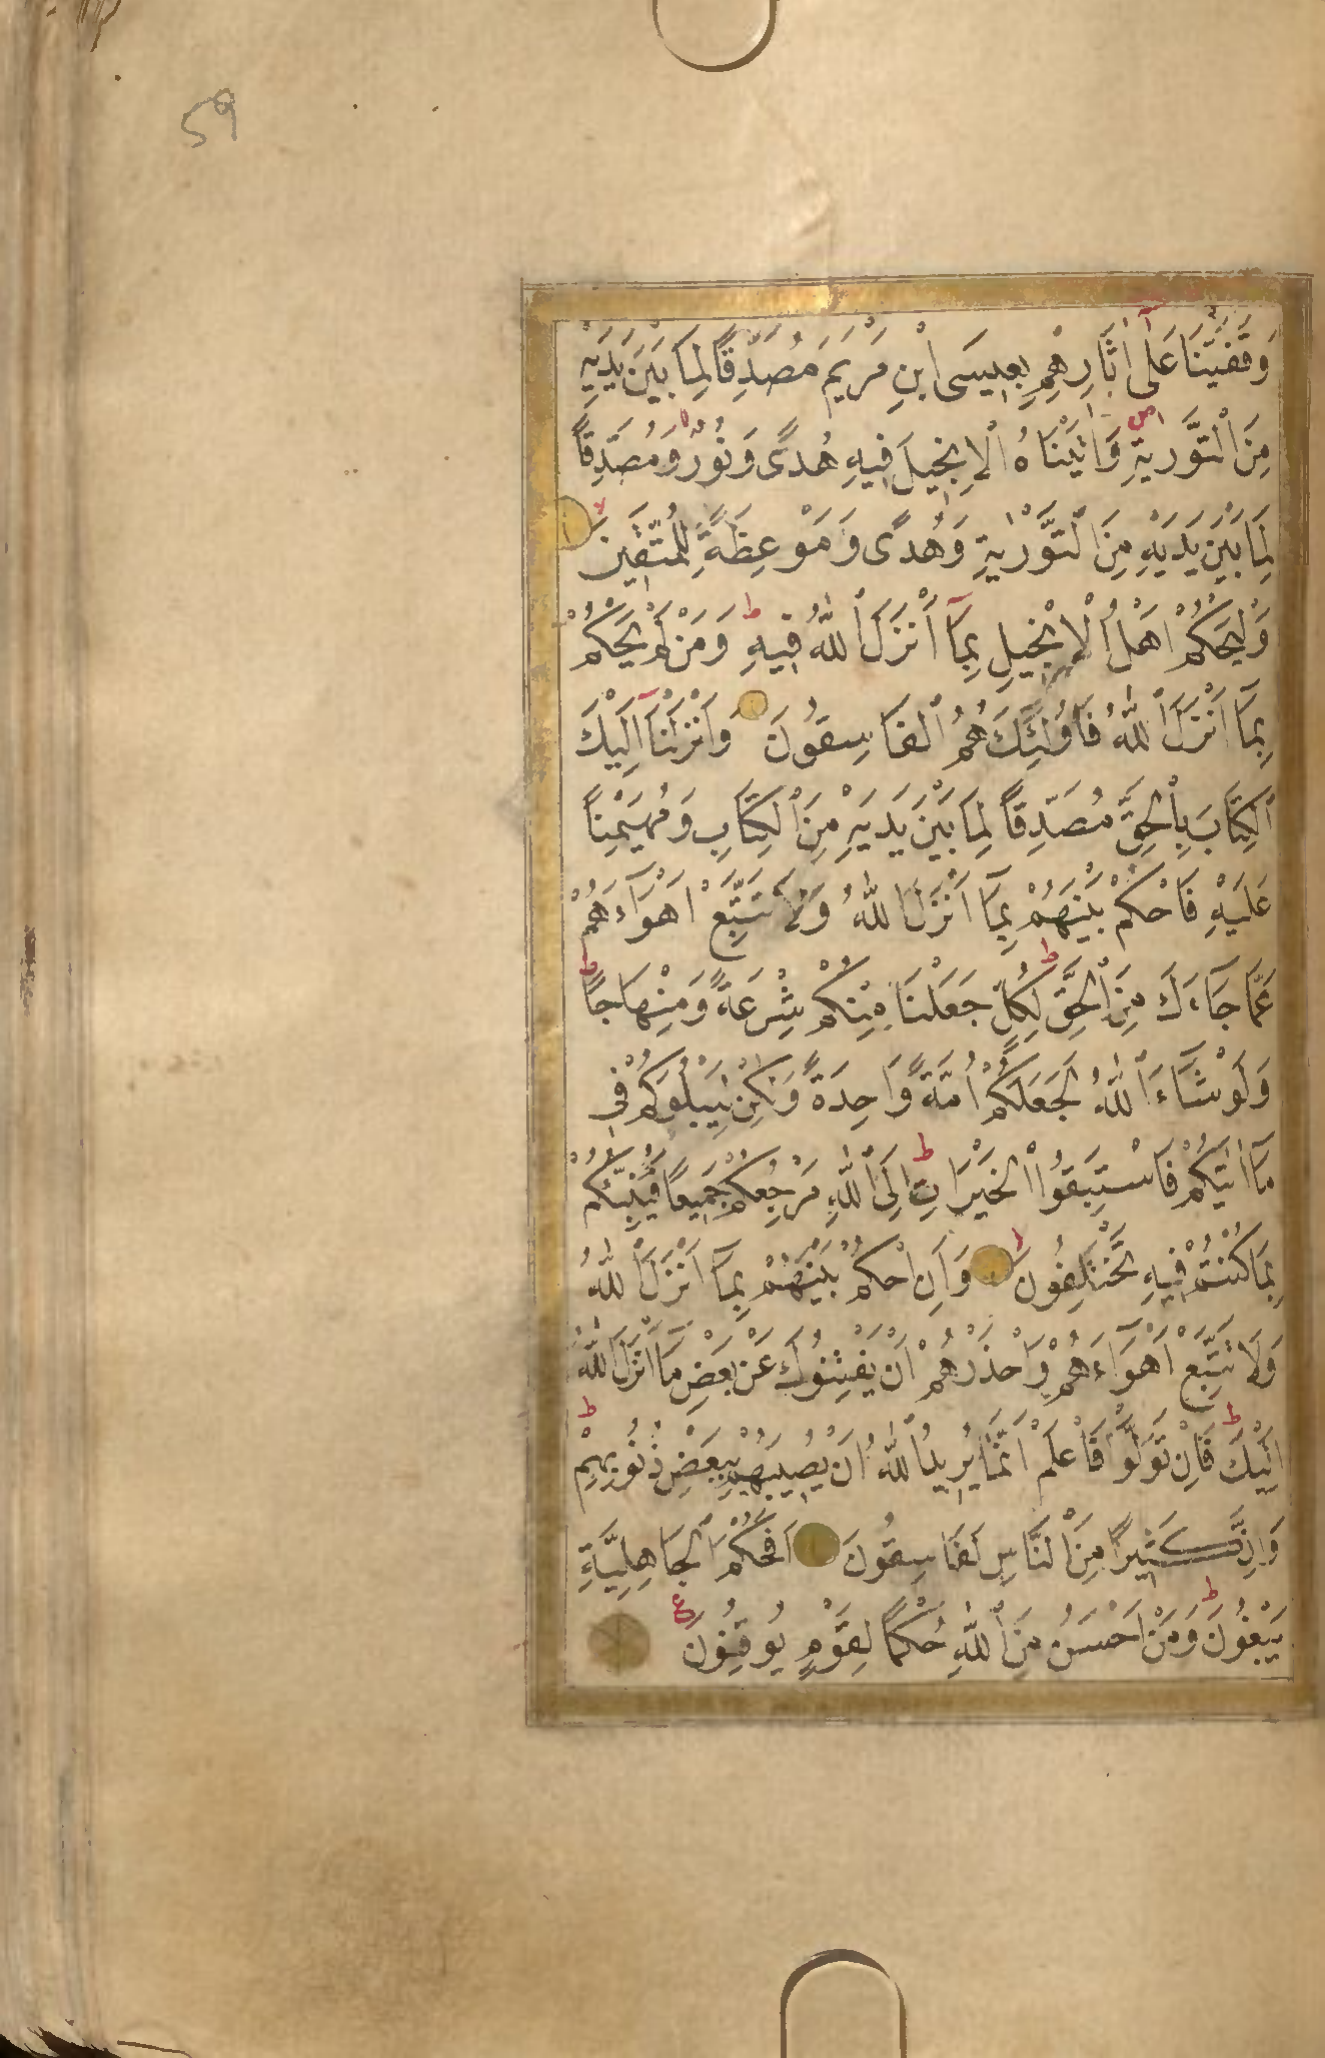 59
وَقَفَّيْنَا عَلٰٓى اٰثَارِهِمْ بِعِيسَى ابْنِ مَرْيَمَ مُصَدِّقًا لِمَا بَيْنَ يَدَيْهِ
مِنَ التَّوْرٰيةِ وَاٰتَيْنَاهُ الْاِنْجِيلَ فِيهِ هُدًى وَنُورٌ وَمُصَدِّقًا
لِمَا بَيْنَ يَدَيْهِ مِنَ التَّوْرٰيةِ وَهُدًى وَمَوْعِظَةً لِلْمُتَّقِينَ
وَلْيَحْكُمْ اَهْلُ الْاِنْجِيلِ بِمَآ اَنْزَلَ اللّٰهُ فِيهِ ط وَمَنْ لَمْ يَحْكُمْ
بِمَآ اَنْزَلَ اللّٰهُ فَاُولٰئِكَ هُمُ الْفَاسِقُونَ وَاَنْزَلْنَآ اِلَيْكَ
الْكِتَابَ بِالْحَقِّ مُصَدِّقًا لِمَا بَيْنَ يَدَيْهِ مِنَ الْكِتَابِ وَمُهَيْمِنًا
عَلَيْهِ فَاحْكُمْ بَيْنَهُمْ بِمَآ اَنْزَلَ اللّٰهُ وَلَا تَتَّبِعْ اَهْوَآءَهُمْ
عَمَّا جَآءَكَ مِنَ الْحَقِّ ط لِكُلٍّ جَعَلْنَا مِنْكُمْ شِرْعَةً وَمِنْهَاجًا ط
وَلَوْ شَآءَ اللّٰهُ لَجَعَلَكُمْ اُمَّةً وَاحِدَةً وَلٰكِنْ لِيَبْلُوَكُمْ فِي
مَآ اٰتٰيكُمْ فَاسْتَبِقُوا الْخَيْرَاتِ ط اِلَى اللّٰهِ مَرْجِعُكُمْ جَمِيعًا فَيُنَبِّئُكُمْ
بِمَا كُنْتُمْ فِيهِ تَخْتَلِفُونَ وَاَنِ احْكُمْ بَيْنَهُمْ بِمَآ اَنْزَلَ اللّٰهُ
وَلَا تَتَّبِعْ اَهْوَآءَهُمْ وَاحْذَرْهُمْ اَنْ يَفْتِنُوكَ عَنْ بَعْضِ مَآ اَنْزَلَ اللّٰهُ
اِلَيْكَ ط فَاِنْ تَوَلَّوْا فَاعْلَمْ اَنَّمَا يُرِيدُ اللّٰهُ اَنْ يُصِيبَهُمْ بِبَعْضِ ذُنُوبِهِمْ ط
وَاِنَّ كَثِيرًا مِنَ النَّاسِ لَفَاسِقُونَ اَفَحُكْمَ الْجَاهِلِيَّةِ
يَبْغُونَ ط وَمَنْ اَحْسَنُ مِنَ اللّٰهِ حُكْمًا لِقَوْمٍ يُوقِنُونَ ع